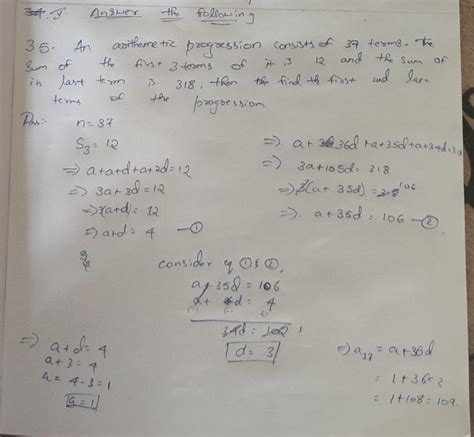 V. Answer the following
35. An arithemetic progression consists of 37 terms. The
sum of the first 3 terms of it is 12 and the sum of
its last term is 318, then the find th first and last
terms of the progression
Ans:- n=37
S₃ = 12
⇒ a+a+d+a+2d=12
⇒ 3a+3d=12
⇒ 3(a+d)= 12
⇒ a+d= 4 —①
⇒ a+36d+a+35d+a+34d=318
⇒ 3a+105d= 318
⇒ 3(a+ 35d)= 318 106
⇒ a+35d = 106 —②
consider eq ① & ②,
a+35d = 106
a+ d = 4
34d= 102
d= 3
⇒ a+d= 4
a+3 = 4
a= 4-3=1
a=1
⇒ a₃₇ = a+36d
= 1+36×3
= 1+108= 109.